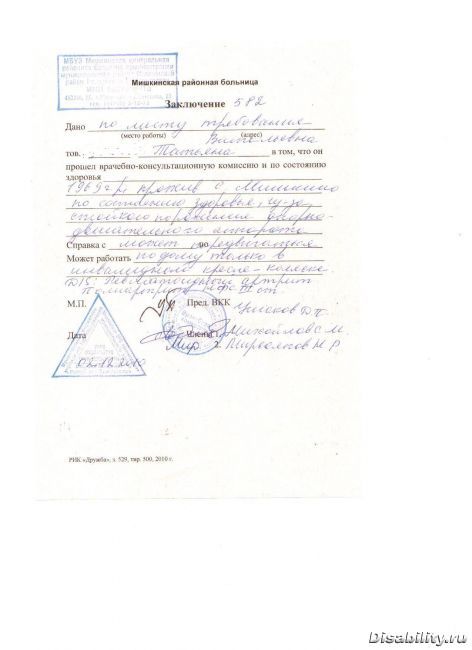 МБУЗ Мишкинская центральная
Мишкинская районная больница
Заключение 582
Дано по месту требования
(место работы) (адрес)
тов. Татьяна Витальевна в том, что он
прошел врачебно-консультационную комиссию и по состоянию
здоровья
1969 г.р, прожив с. Мишкино
по состоянию здоровья, из-за
стойкого поражения опорно-
двигательного аппарата
Справка с может по передвигаться
Может работать по дому только в
инвалидном кресле-коляске.
DS: Ревматоидный артрит
Полиартрит III ст.
М.П. Пред. ВКК Ушаков Д.П.
Дата Члены 1. Михайлов С.М.
02.12.2010 2. Мирсаяпов М Р
РИК «Дружба», з. 529, тир. 500, 2010 г.
Disability.ru